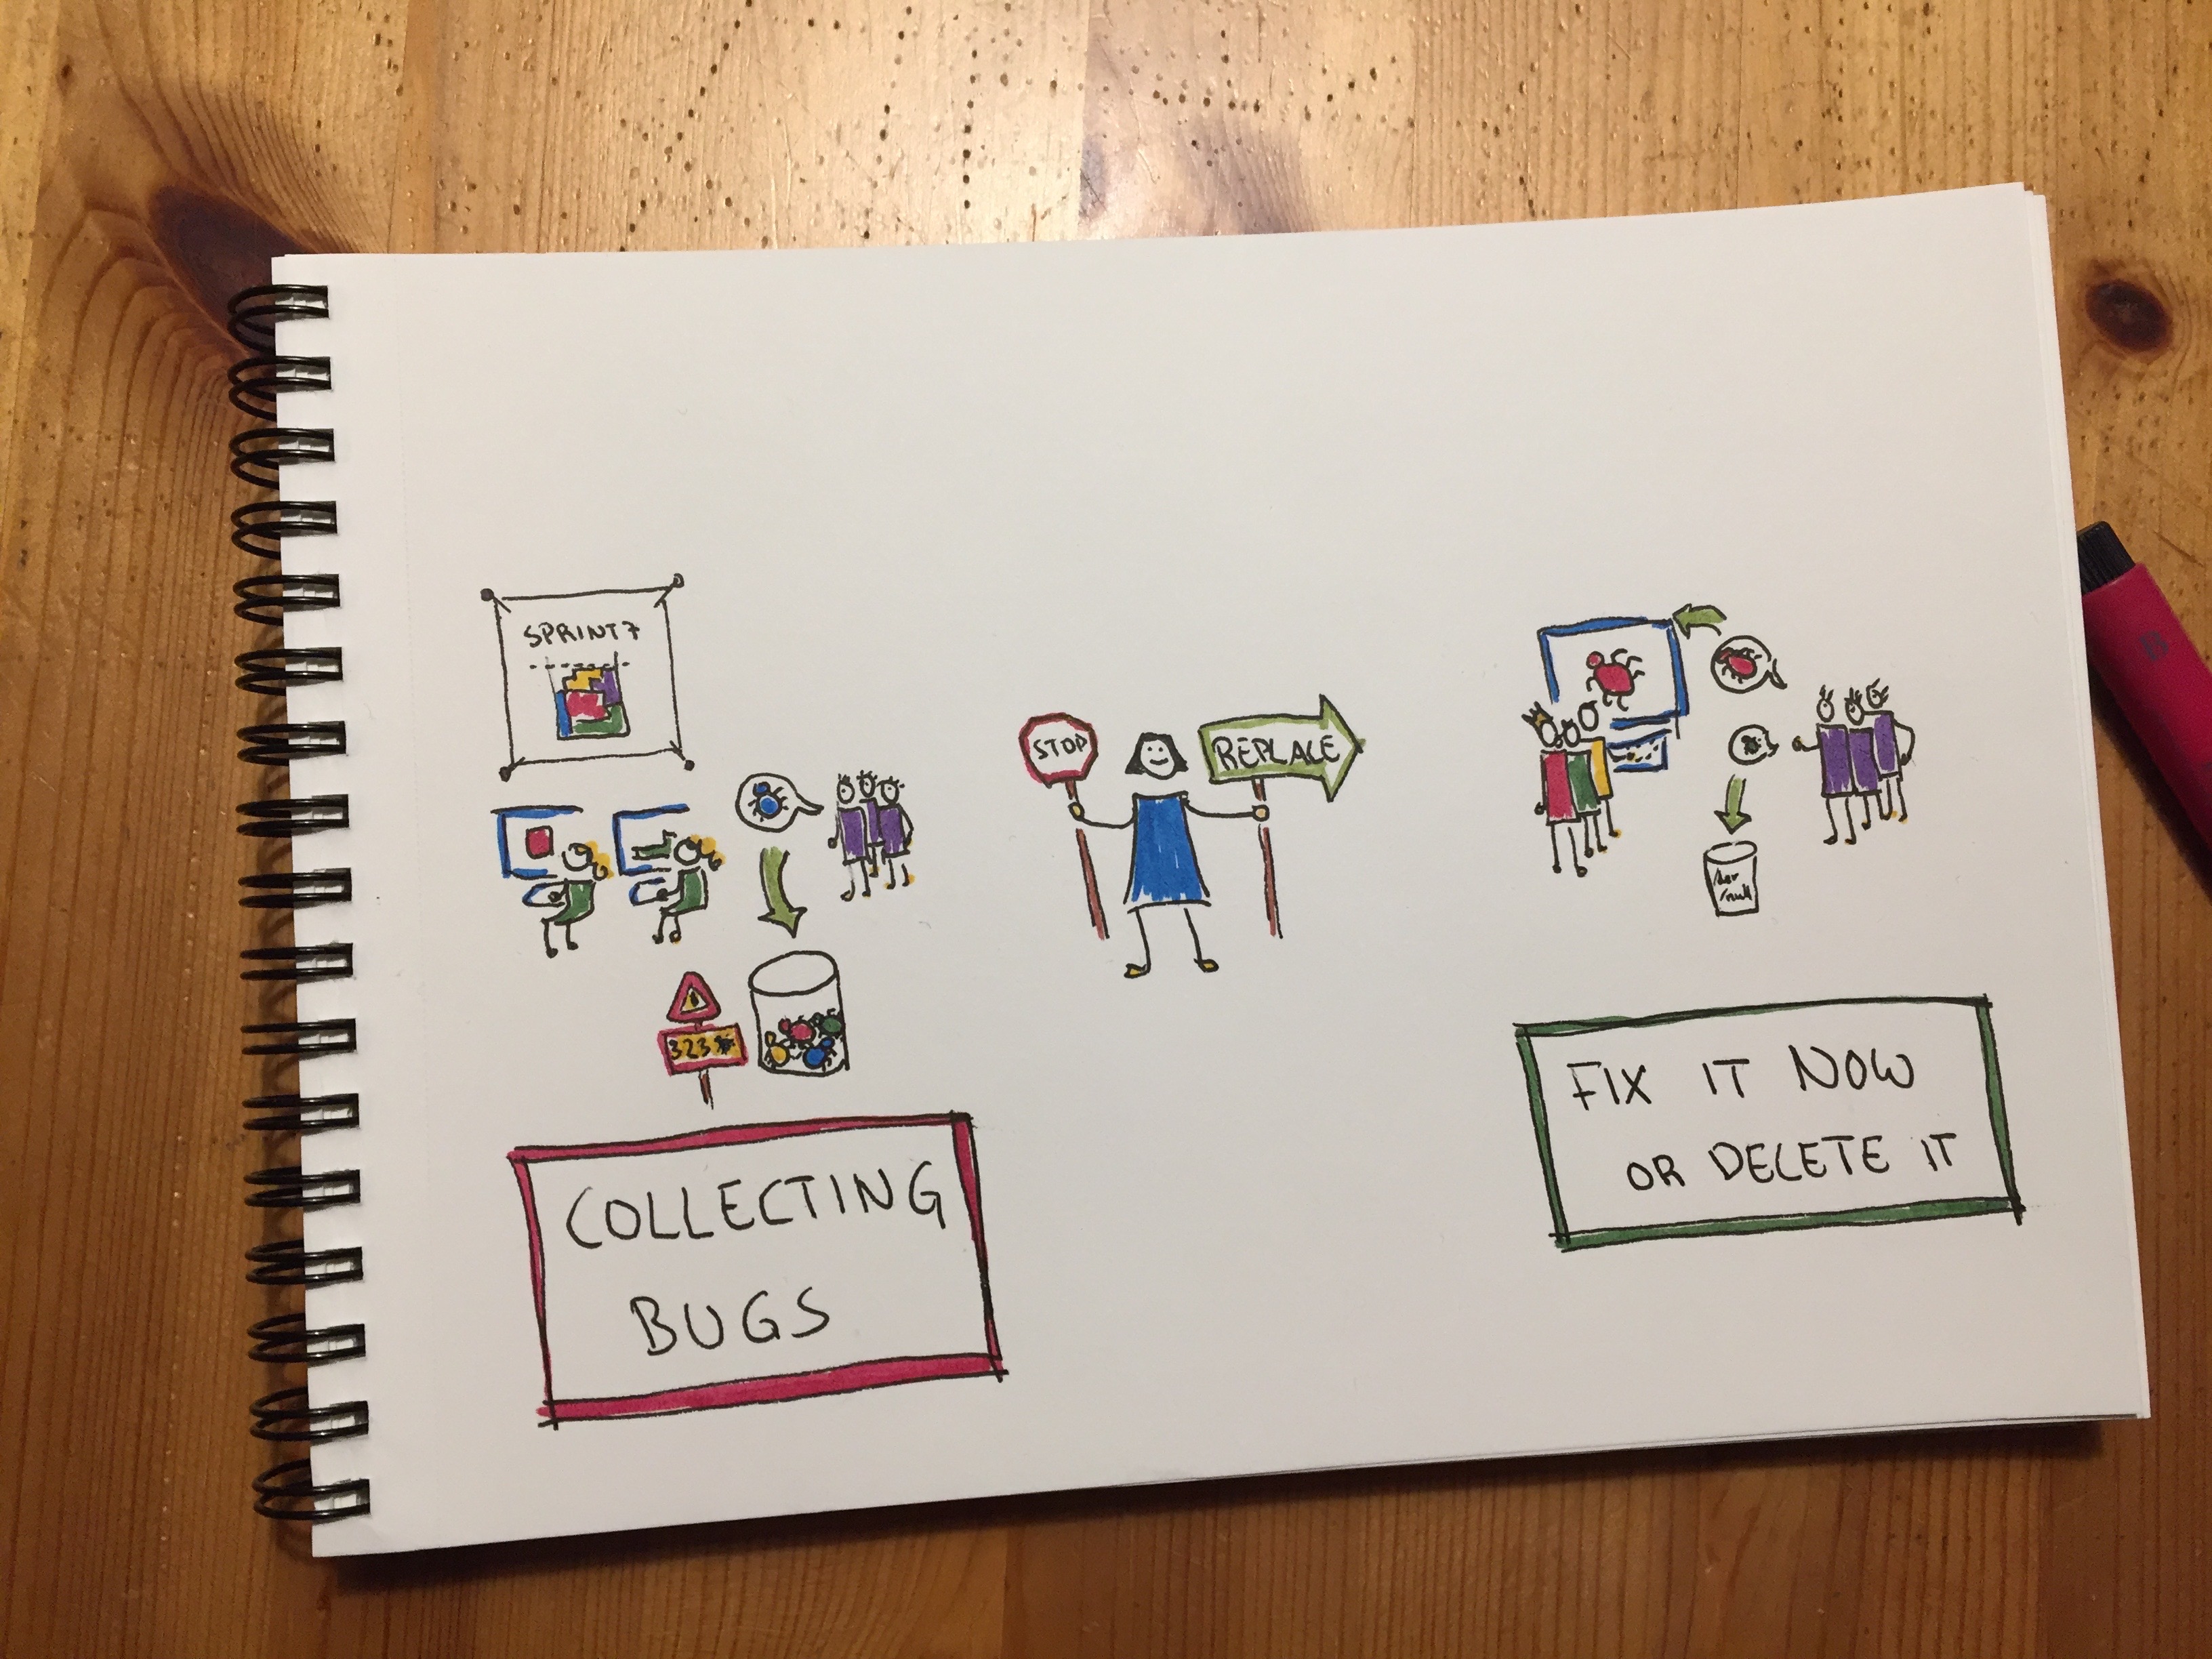 SPRINT 7
323
COLLECTING
BUGS
STOP
REPLACE
/dev
/null
FIX IT NOW
OR DELETE IT